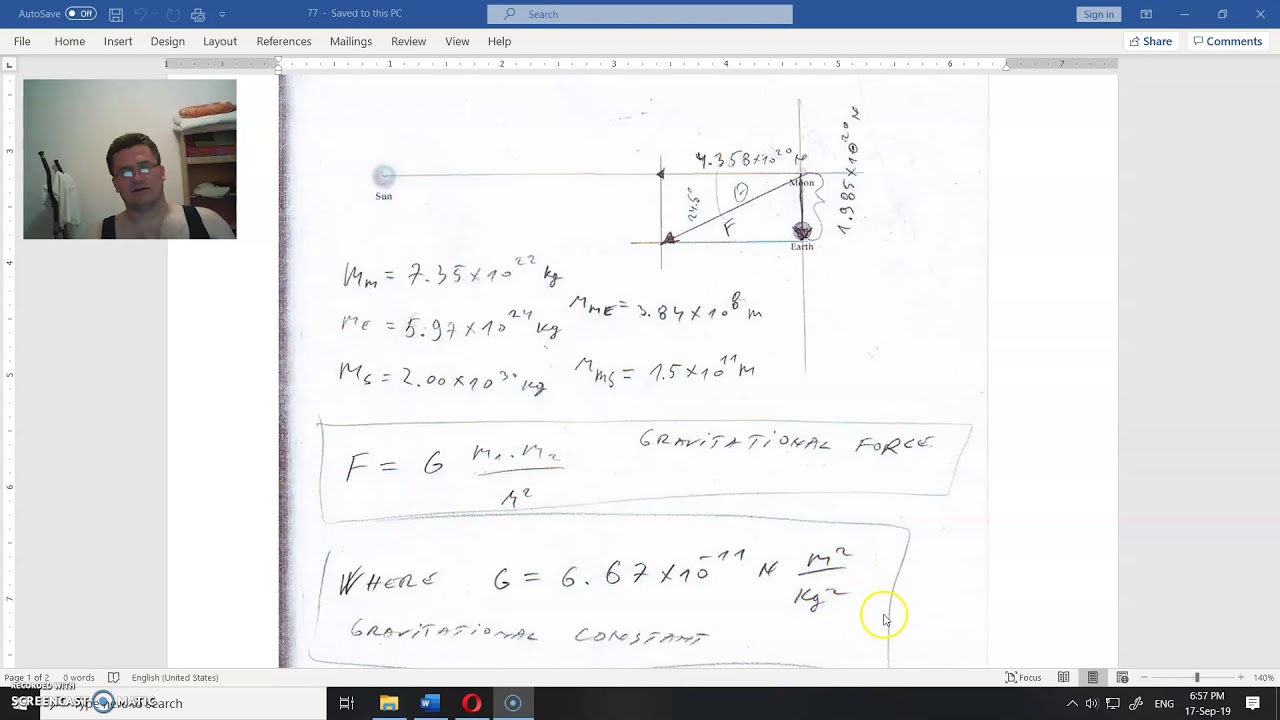 AutoSave Off
77 - Saved to this PC
Search
Sign in
File Home Insert Design Layout References Mailings Review View Help
Share Comments
1 1 2 3 4 5 6 7
Sun
4.358×10²⁰ N
Moon
1.985×10²⁰ N
24.5°
F
Earth
Mm = 7.35×10²² kg
ME = 5.97×10²⁴ kg
rME = 3.84×10⁸ m
MS = 2.00×10³⁰ kg
rMS = 1.5×10¹¹ m
F = G m₁.m₂ / r²
GRAVITATIONAL FORCE
WHERE G = 6.67×10⁻¹¹ N m² / kg²
GRAVITATIONAL CONSTANT
3
4
5
6
7
English (United States)
Focus
140%
RECORDED WITH
SCREENCAST MATIC
search
ENG
6:57 PM
17-Sep-19